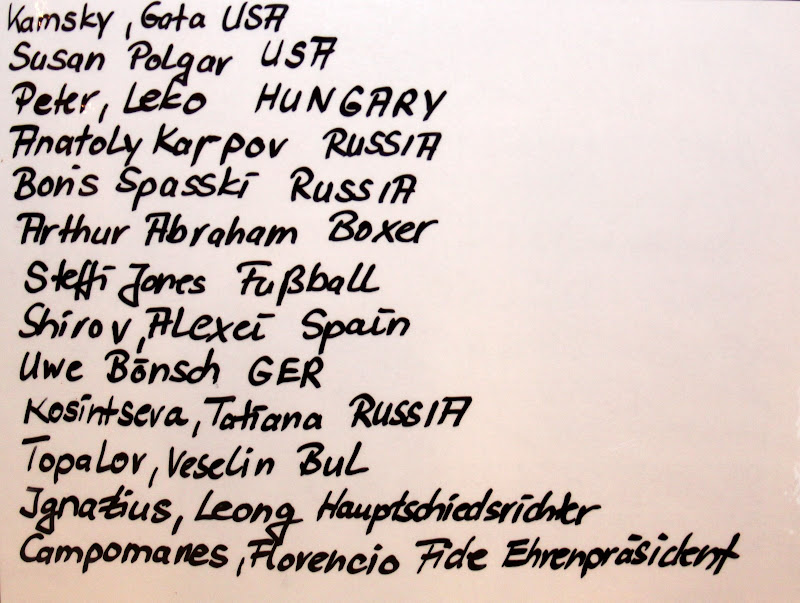 Kamsky, Gata USA
Susan Polgar USA
Peter, Leko HUNGARY
Anatoly Karpov RUSSIA
Boris Spasski RUSSIA
Arthur Abraham Boxer
Steffi Jones Fußball
Shirov, Alexei Spain
Uwe Bönsch GER
Kosintseva, Tatiana RUSSIA
Topalov, Veselin BUL
Ignatius, Leong Hauptschiedsrichter
Campomanes, Florencio Fide Ehrenpräsident